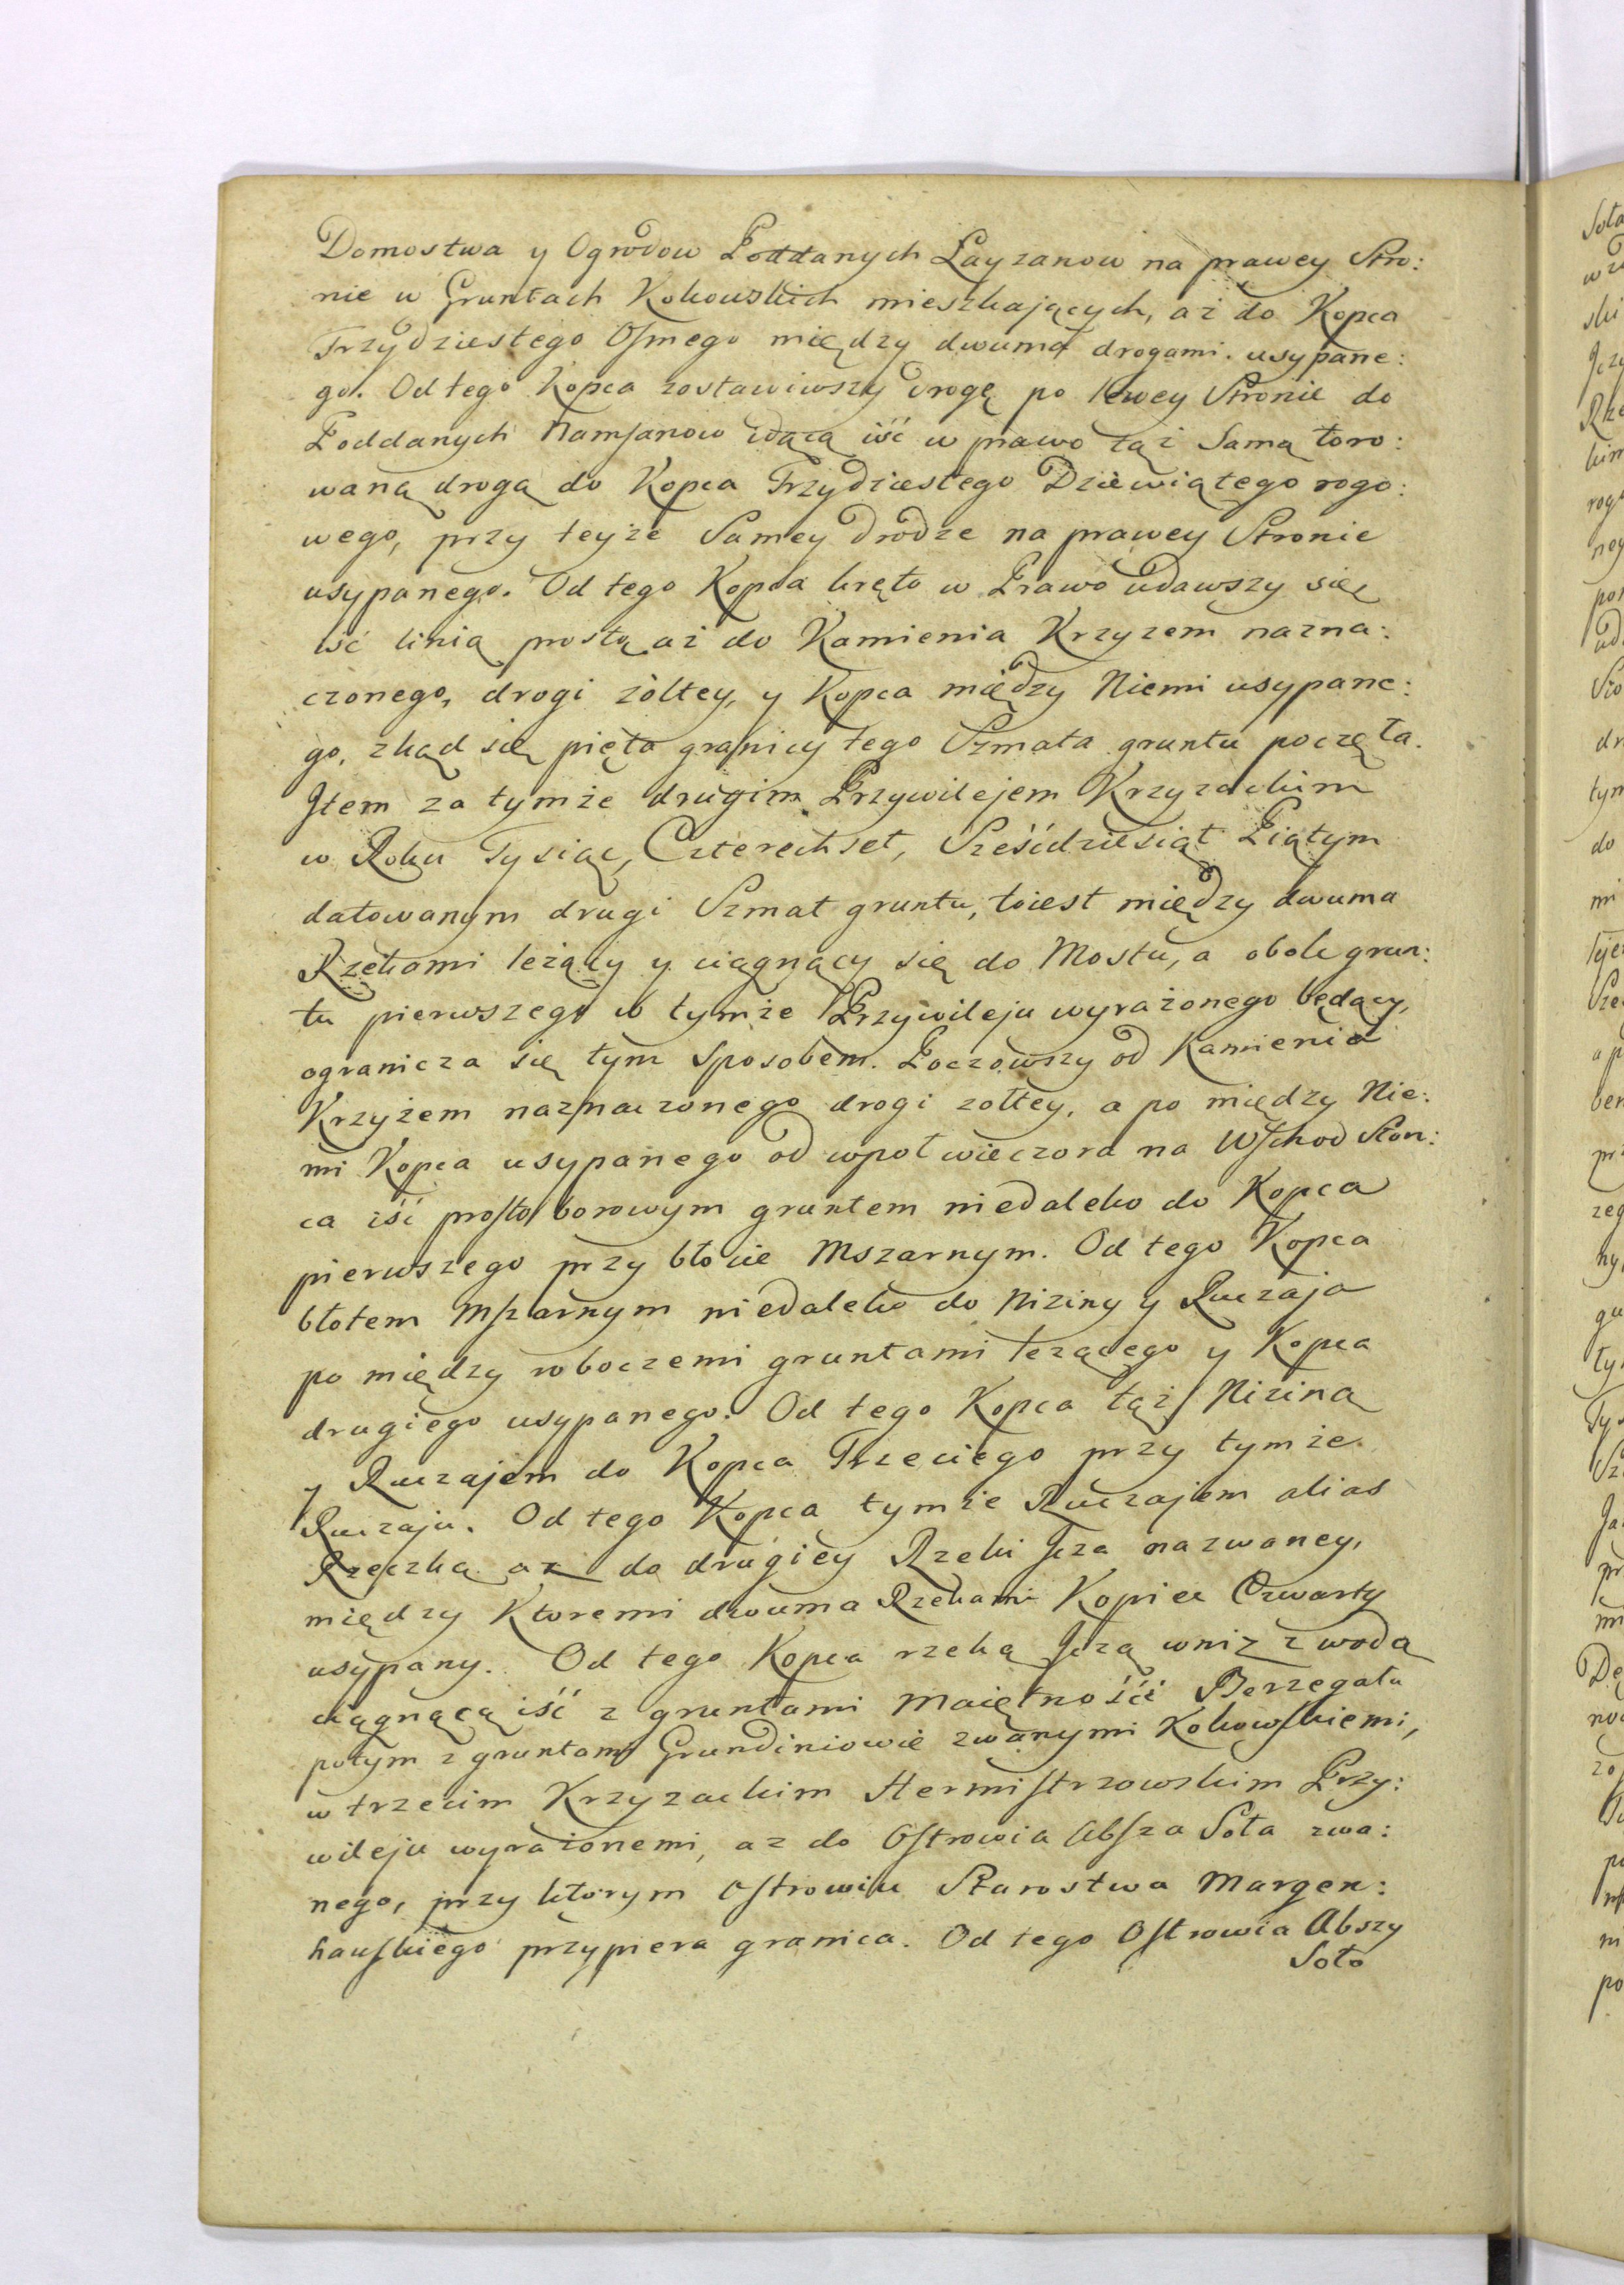 Domostwa y Ogrodow Poddanych Layzanow na prawey Stro:
nie w Gruntach Kokowskich mieszkających, aż do Kopca
Trzydziestego Osmego między dwuma drogami usypane:
go. Od tego Kopca zostawiwszy drogę po lewey Stronie do
Poddanych Ramsanow idącą iść w prawo tąż Samą toro:
waną drogą do Kopca Trzydziestego Dziewiątego rogo:
wego, przy teyże Samey drodze na prawey Stronie
usypanego. Od tego Kopca kręto w Prawo udawszy się
iść linią prostą aż do Kamienia Krzyzem nazna:
czonego, drogi żółtey, y Kopca między Niemi usypane:
go, zkąd się pięta granicy tego Szmata gruntu poczęta.
Item za tymże drugim Przywilejem Krzyzackim
w Roku Tysiąc, Czterechset, Sześćdziesiąt Piątym
datowanym drugi Szmat gruntu, toiest między dwuma
Rzekami leżący y ciągnący się do Mostu, a obok grun:
tu pierwszego w tymże Przywileju wyrażonego będący,
ogranicza się tym sposobem. Poczowszy od Kamienia
Krzyżem naznaczonego drogi zołtey, a po między Nie:
mi Kopca usypanego od wpoł wieczora na Wschod Słon:
ca iść prosto borowym gruntem niedaleko do Kopca
pierwszego przy błocie Mszarnym. Od tego Kopca
błotem Mszarnym niedaleko do Niziny y Ruczaja
po między roboczemi gruntami leżącego y Kopca
drugiego usypanego. Od tego Kopca tąż Niziną
y Ruczajem do Kopca Trzeciego przy tymże
Ruczaju. Od tego Kopca tymże Ruczajem alias
Rzeczką az do drugiey Rzeki Jcza nazwaney,
między Ktoremi dwuma Rzekami Kopiec Czwarty
usypany. Od tego Kopca rzeką Jczą wniz z wodą
ciągnącą iść z gruntami Maiętności Berzegału
potym z gruntami Grundiniowie zwanymi Kokowskiemi,
w trzecim Krzyzackim Hermistrzowskim Przy:
wileju wyrażonemi, az do Ostrowia Absza Soła zwa:
nego, przy którym Ostrowiu Starostwa Margen:
hauskiego przypiera granica. Od tego Ostrowia Abszy
Soło